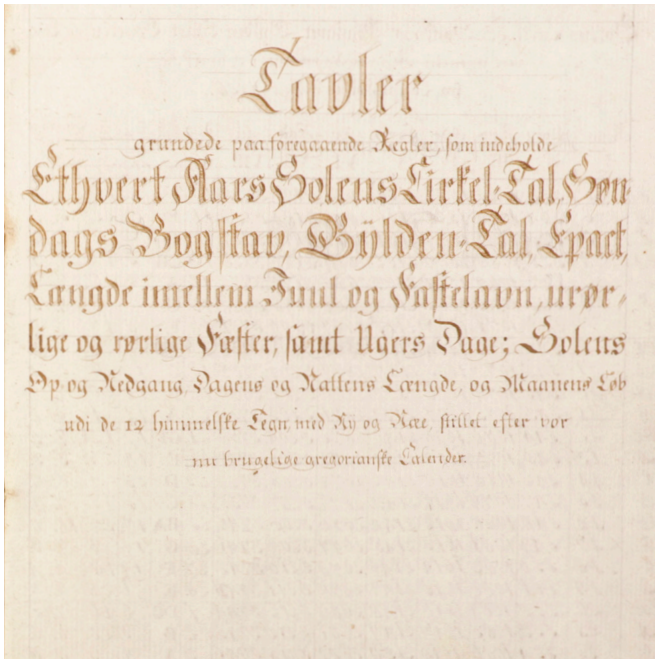 Tavler
grundede paa foregaaende Regler, som indeholde
Ethvert Aars Solens Cirkel-Tal, Søn-
dags Bogstav, Gÿlden-Tal, Epact,
Længde imellem Juul og Fastelavn, urør-
lige og rørlige Fæster, samt Ugers Dage; Solens
Op og Nedgang, Dagens og Nattens Længde, og Maanens Løb
udi de 12 himmelske Tegn, med Nÿ og Næe, stillet efter vor
nu brugelige gregorianske Calender.